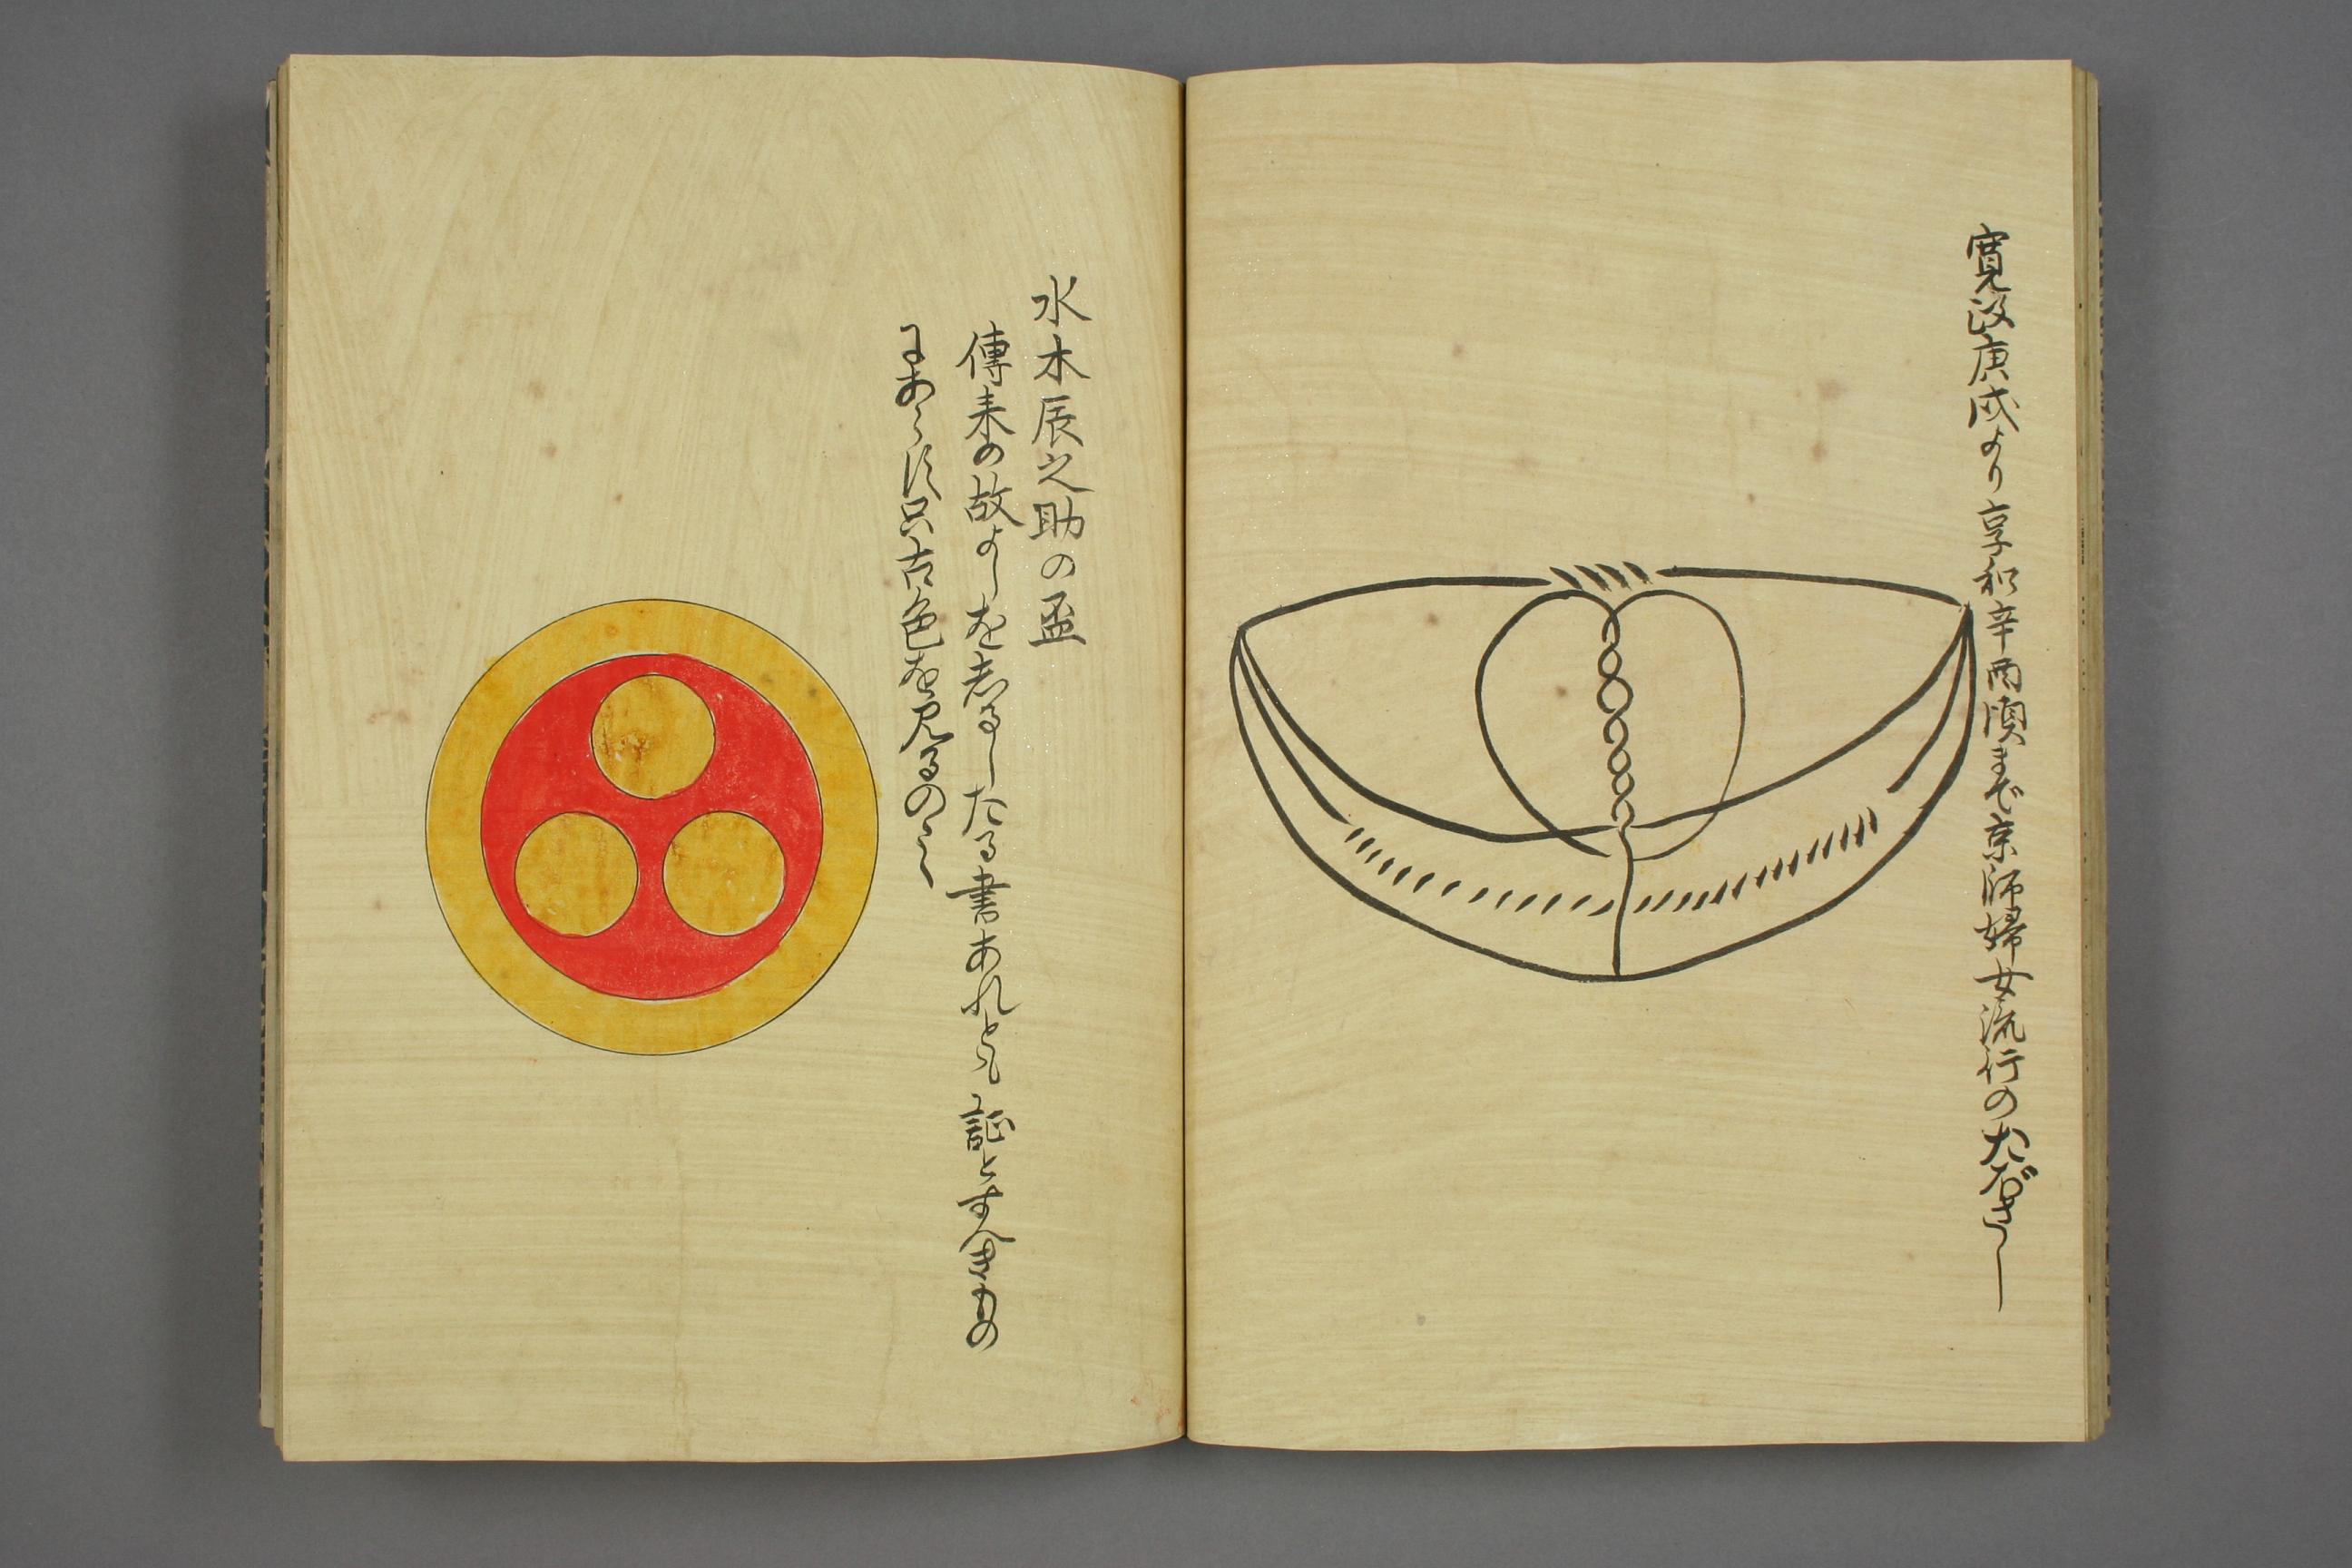 寛政庚戌より享和辛酉頃まで京師婦女流行のたぼさし
水木辰之助の盃
傳来の故よしを志るしたる書あれとも証とすへきもの
にあらす只古色を見るのミ